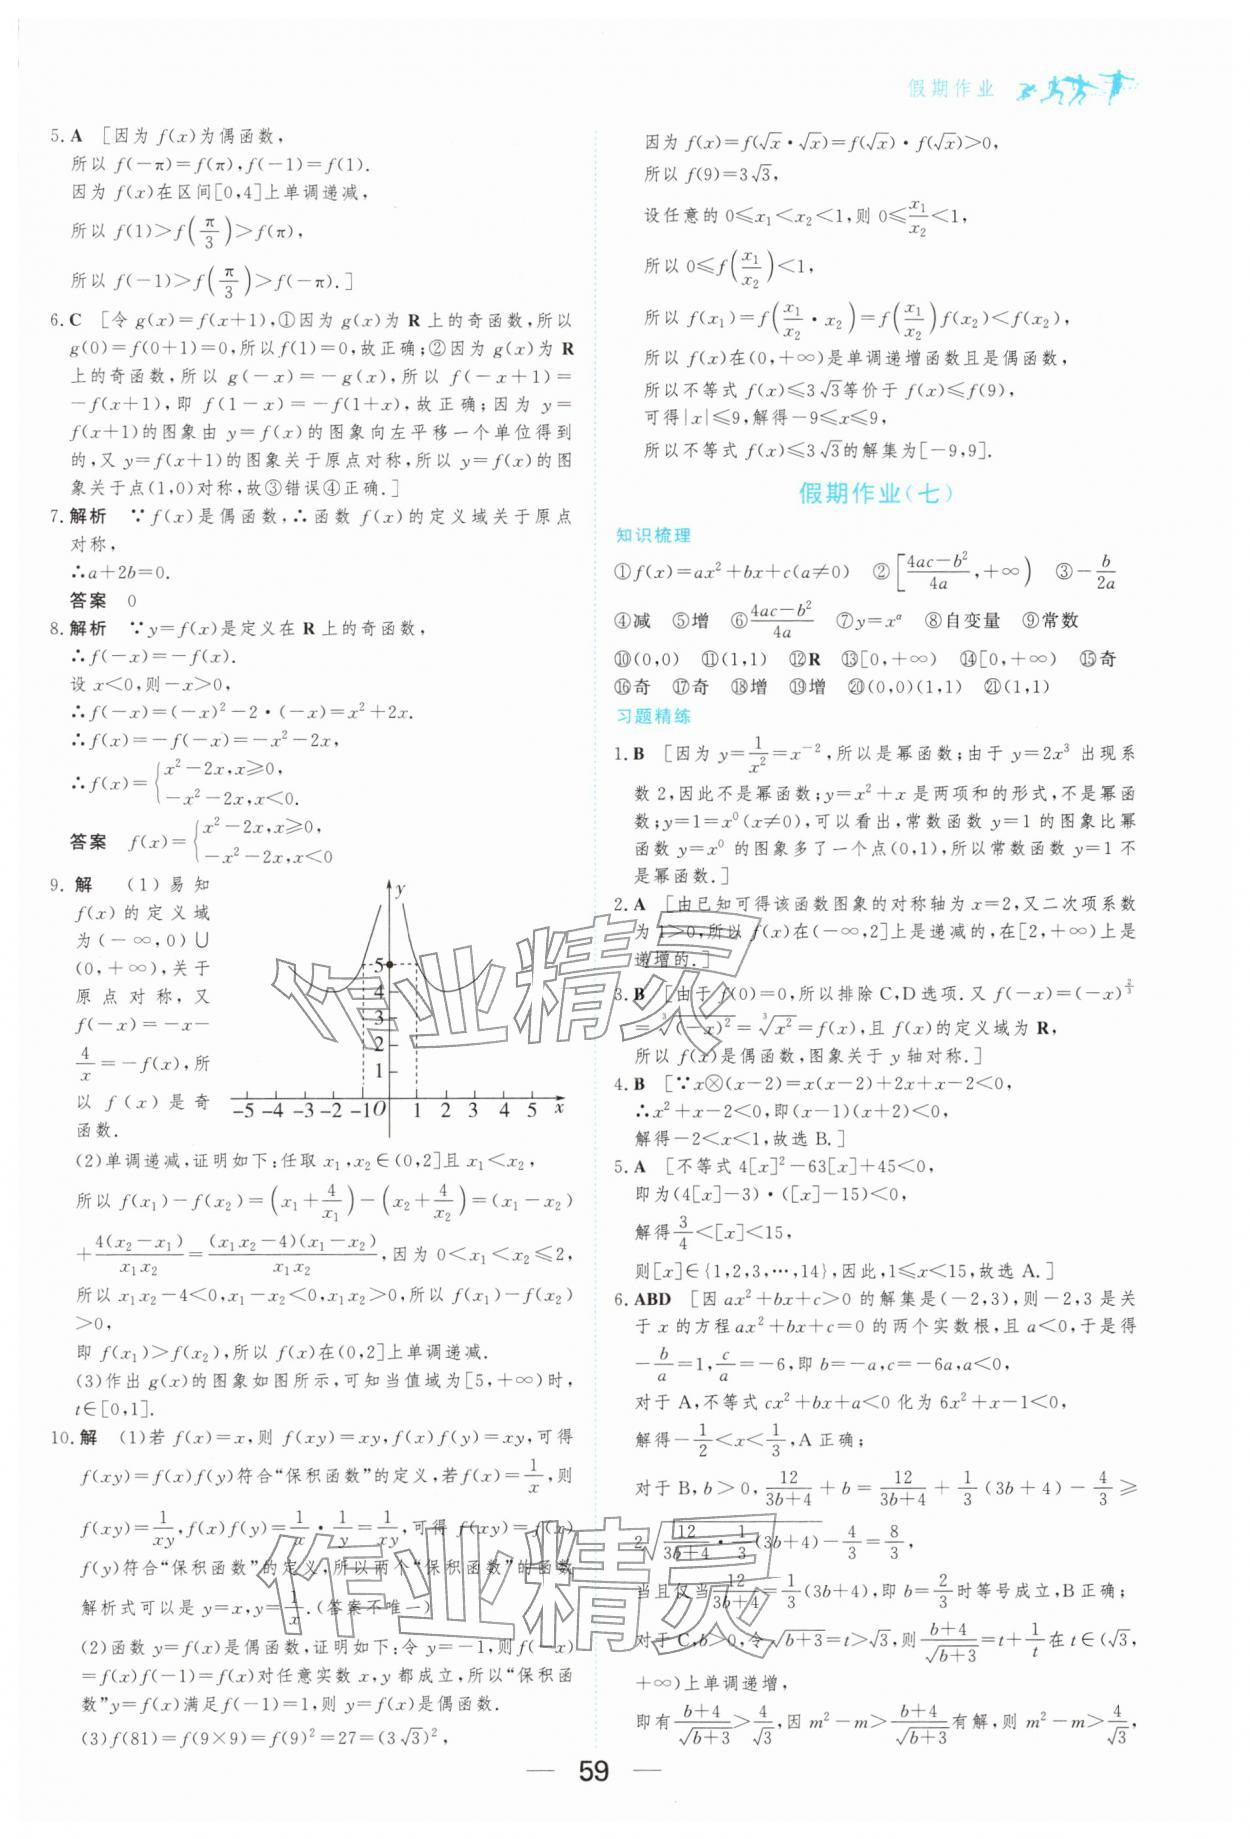 假期作业
5. A [因为 f(x)为偶函数,
所以 f(-π)=f(π),f(-1)=f(1).
因为 f(x)在区间[0,4]上单调递减,
所以 f(1)>f(π/3)>f(π),
所以 f(-1)>f(π/3)>f(-π).]
6. C [令 g(x)=f(x+1),①因为 g(x)为 R 上的奇函数,所以
g(0)=f(0+1)=0,所以f(1)=0,故正确;②因为 g(x)为 R
上的奇函数,所以 g(-x)=-g(x),所以 f(-x+1)=
-f(x+1),即 f(1-x)=-f(1+x),故正确;因为 y=
f(x+1)的图象由 y=f(x)的图象向左平移一个单位得到
的,又 y=f(x+1)的图象关于原点对称,所以 y=f(x)的图
象关于点(1,0)对称,故③错误④正确.]
7. 解析 ∵f(x)是偶函数,∴函数 f(x)的定义域关于原点
对称,
∴a+2b=0.
答案 0
8. 解析 ∵y=f(x)是定义在 R 上的奇函数,
∴f(-x)=-f(x).
设 x<0,则-x>0,
∴f(-x)=(-x)²-2·(-x)=x²+2x.
∴f(x)=-f(-x)=-x²-2x,
∴f(x)={x²-2x,x≥0,
-x²-2x,x<0.
答案 f(x)={x²-2x,x≥0,
-x²-2x,x<0
9. 解 (1)易知
f(x)的定义域
为(-∞,0)∪
(0,+∞),关于
原点对称,又
f(-x)=-x-
4/x=-f(x),所
以 f(x)是奇
函数.
y
5
4
3
2
1
-5 -4 -3 -2 -1 O 1 2 3 4 5 x
(2)单调递减,证明如下:任取 x₁,x₂∈(0,2]且 x₁<x₂,
所以 f(x₁)-f(x₂)=(x₁+4/x₁)-(x₂+4/x₂)=(x₁-x₂)
+4(x₂-x₁)/x₁x₂=(x₁x₂-4)(x₁-x₂)/x₁x₂,因为 0<x₁<x₂≤2,
所以 x₁x₂-4<0,x₁-x₂<0,x₁x₂>0,所以 f(x₁)-f(x₂)
>0,
即 f(x₁)>f(x₂),所以 f(x)在(0,2]上单调递减.
(3)作出 g(x)的图象如图所示,可知当值域为[5,+∞)时,
t∈[0,1].
10. 解 (1)若 f(x)=x,则 f(xy)=xy,f(x)f(y)=xy,可得
f(xy)=f(x)f(y)符合“保积函数”的定义,若f(x)=1/x,则
f(xy)=1/xy,f(x)f(y)=1/x·1/y=1/xy,可得 f(xy)=f(x)
f(y)符合“保积函数”的定义,所以两个“保积函数”的函数
解析式可以是 y=x,y=1/x.(答案不唯一)
(2)函数 y=f(x)是偶函数,证明如下:令 y=-1,则 f(-x)
=f(x)f(-1)=f(x)对任意实数 x,y 都成立,所以“保积函
数”y=f(x)满足f(-1)=1,则 y=f(x)是偶函数.
(3)f(81)=f(9×9)=f(9)²=27=(3√3)²,
因为 f(x)=f(√x·√x)=f(√x)·f(√x)>0,
所以 f(9)=3√3,
设任意的 0≤x₁<x₂<1,则 0≤x₁/x₂<1,
所以 0≤f(x₁/x₂)<1,
所以 f(x₁)=f(x₁/x₂·x₂)=f(x₁/x₂)f(x₂)<f(x₂),
所以 f(x)在(0,+∞)是单调递增函数且是偶函数,
所以不等式 f(x)≤3√3等价于 f(x)≤f(9),
可得|x|≤9,解得-9≤x≤9,
所以不等式 f(x)≤3√3的解集为[-9,9].
假期作业(七)
知识梳理
①f(x)=ax²+bx+c(a≠0) ②[4ac-b²/4a,+∞) ③-b/2a
④减 ⑤增 ⑥4ac-b²/4a ⑦y=xᵅ ⑧自变量 ⑨常数
⑩(0,0) ⑪(1,1) ⑫R ⑬[0,+∞) ⑭[0,+∞) ⑮奇
⑯奇 ⑰奇 ⑱增 ⑲增 ⑳(0,0)(1,1) ㉑(1,1)
习题精练
1. B [因为 y=1/x²=x⁻²,所以是幂函数;由于 y=2x³ 出现系
数 2,因此不是幂函数;y=x²+x 是两项和的形式,不是幂函
数;y=1=x⁰(x≠0),可以看出,常数函数 y=1 的图象比幂
函数 y=x⁰ 的图象多了一个点(0,1),所以常数函数 y=1 不
是幂函数.]
2. A [由已知可得该函数图象的对称轴为 x=2,又二次项系数
为 1>0,所以 f(x)在(-∞,2]上是递减的,在[2,+∞)上是
递增的.]
3. B [由于 f(0)=0,所以排除 C,D选项.又 f(-x)=(-x)^(2/3)
=∛(-x)²=∛x²=f(x),且 f(x)的定义域为 R,
所以 f(x)是偶函数,图象关于 y 轴对称.]
4. B [∵x⊗(x-2)=x(x-2)+2x+x-2<0,
∴x²+x-2<0,即(x-1)(x+2)<0,
解得-2<x<1,故选 B.]
5. A [不等式 4[x]²-63[x]+45<0,
即为(4[x]-3)·([x]-15)<0,
解得3/4<[x]<15,
则[x]∈{1,2,3,…,14},因此,1≤x<15,故选 A.]
6. ABD [因 ax²+bx+c>0 的解集是(-2,3),则-2,3 是关
于 x 的方程 ax²+bx+c=0 的两个实数根,且 a<0,于是得
-b/a=1,c/a=-6,即 b=-a,c=-6a,a<0,
对于 A,不等式 cx²+bx+a<0 化为 6x²+x-1<0,
解得-1/2<x<1/3,A 正确;
对于 B,b>0,12/(3b+4)+b=12/(3b+4)+1/3(3b+4)-4/3≥
2√(12/(3b+4)·1/3(3b+4))-4/3=8/3,
当且仅当12/(3b+4)=1/3(3b+4),即 b=2/3时等号成立,B正确;
对于 C,b>0,令√(b+3)=t>√3,则(b+4)/√(b+3)=t+1/t在 t∈(√3,
+∞)上单调递增,
即有(b+4)/√(b+3)>4/√3,因 m²-m>(b+4)/√(b+3)有解,则 m²-m>4/√3,
作业精灵
作业精灵
59